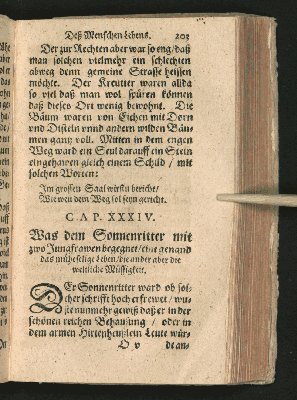 Deß Menschen Lebens. 203
Der zur Rechten aber war so eng/ daß
man solchen vielmehr ein schlechten
abweg denn gemeine Strasse heissen
möchte. Der Kreutter waren allda
so viel daß man wol spüren können
daß dieses Ort wenig bewohnt. Die
Bäum waren von Eichen mit Dorn
und Disteln vnnd andern wilden Bäu-
men gantz voll. Mitten in dem engen
Weg ward ein Seul darauff ein Stein
eingehawen gleich einem Schild / mit
solchen Worten:
Im grossen Saal wirstu bericht/
Wie wen dem Weg sol seyn gericht.
CAP. XXXIV.
Was dem Sonnenritter mit
zwo Jungfrawen begegnet/ eine genand
das mühselige Leben/ die ander aber die
weltliche Müssigkeit.
DEr Sonnenritter ward ob sol-
cher schrifft hoch erfrewet / wu-
ste nunmehr gewiß daß er in der
schönen reichen Behausung / oder in
dem armen Hirtenheußlein Leute wür-
O v de an-